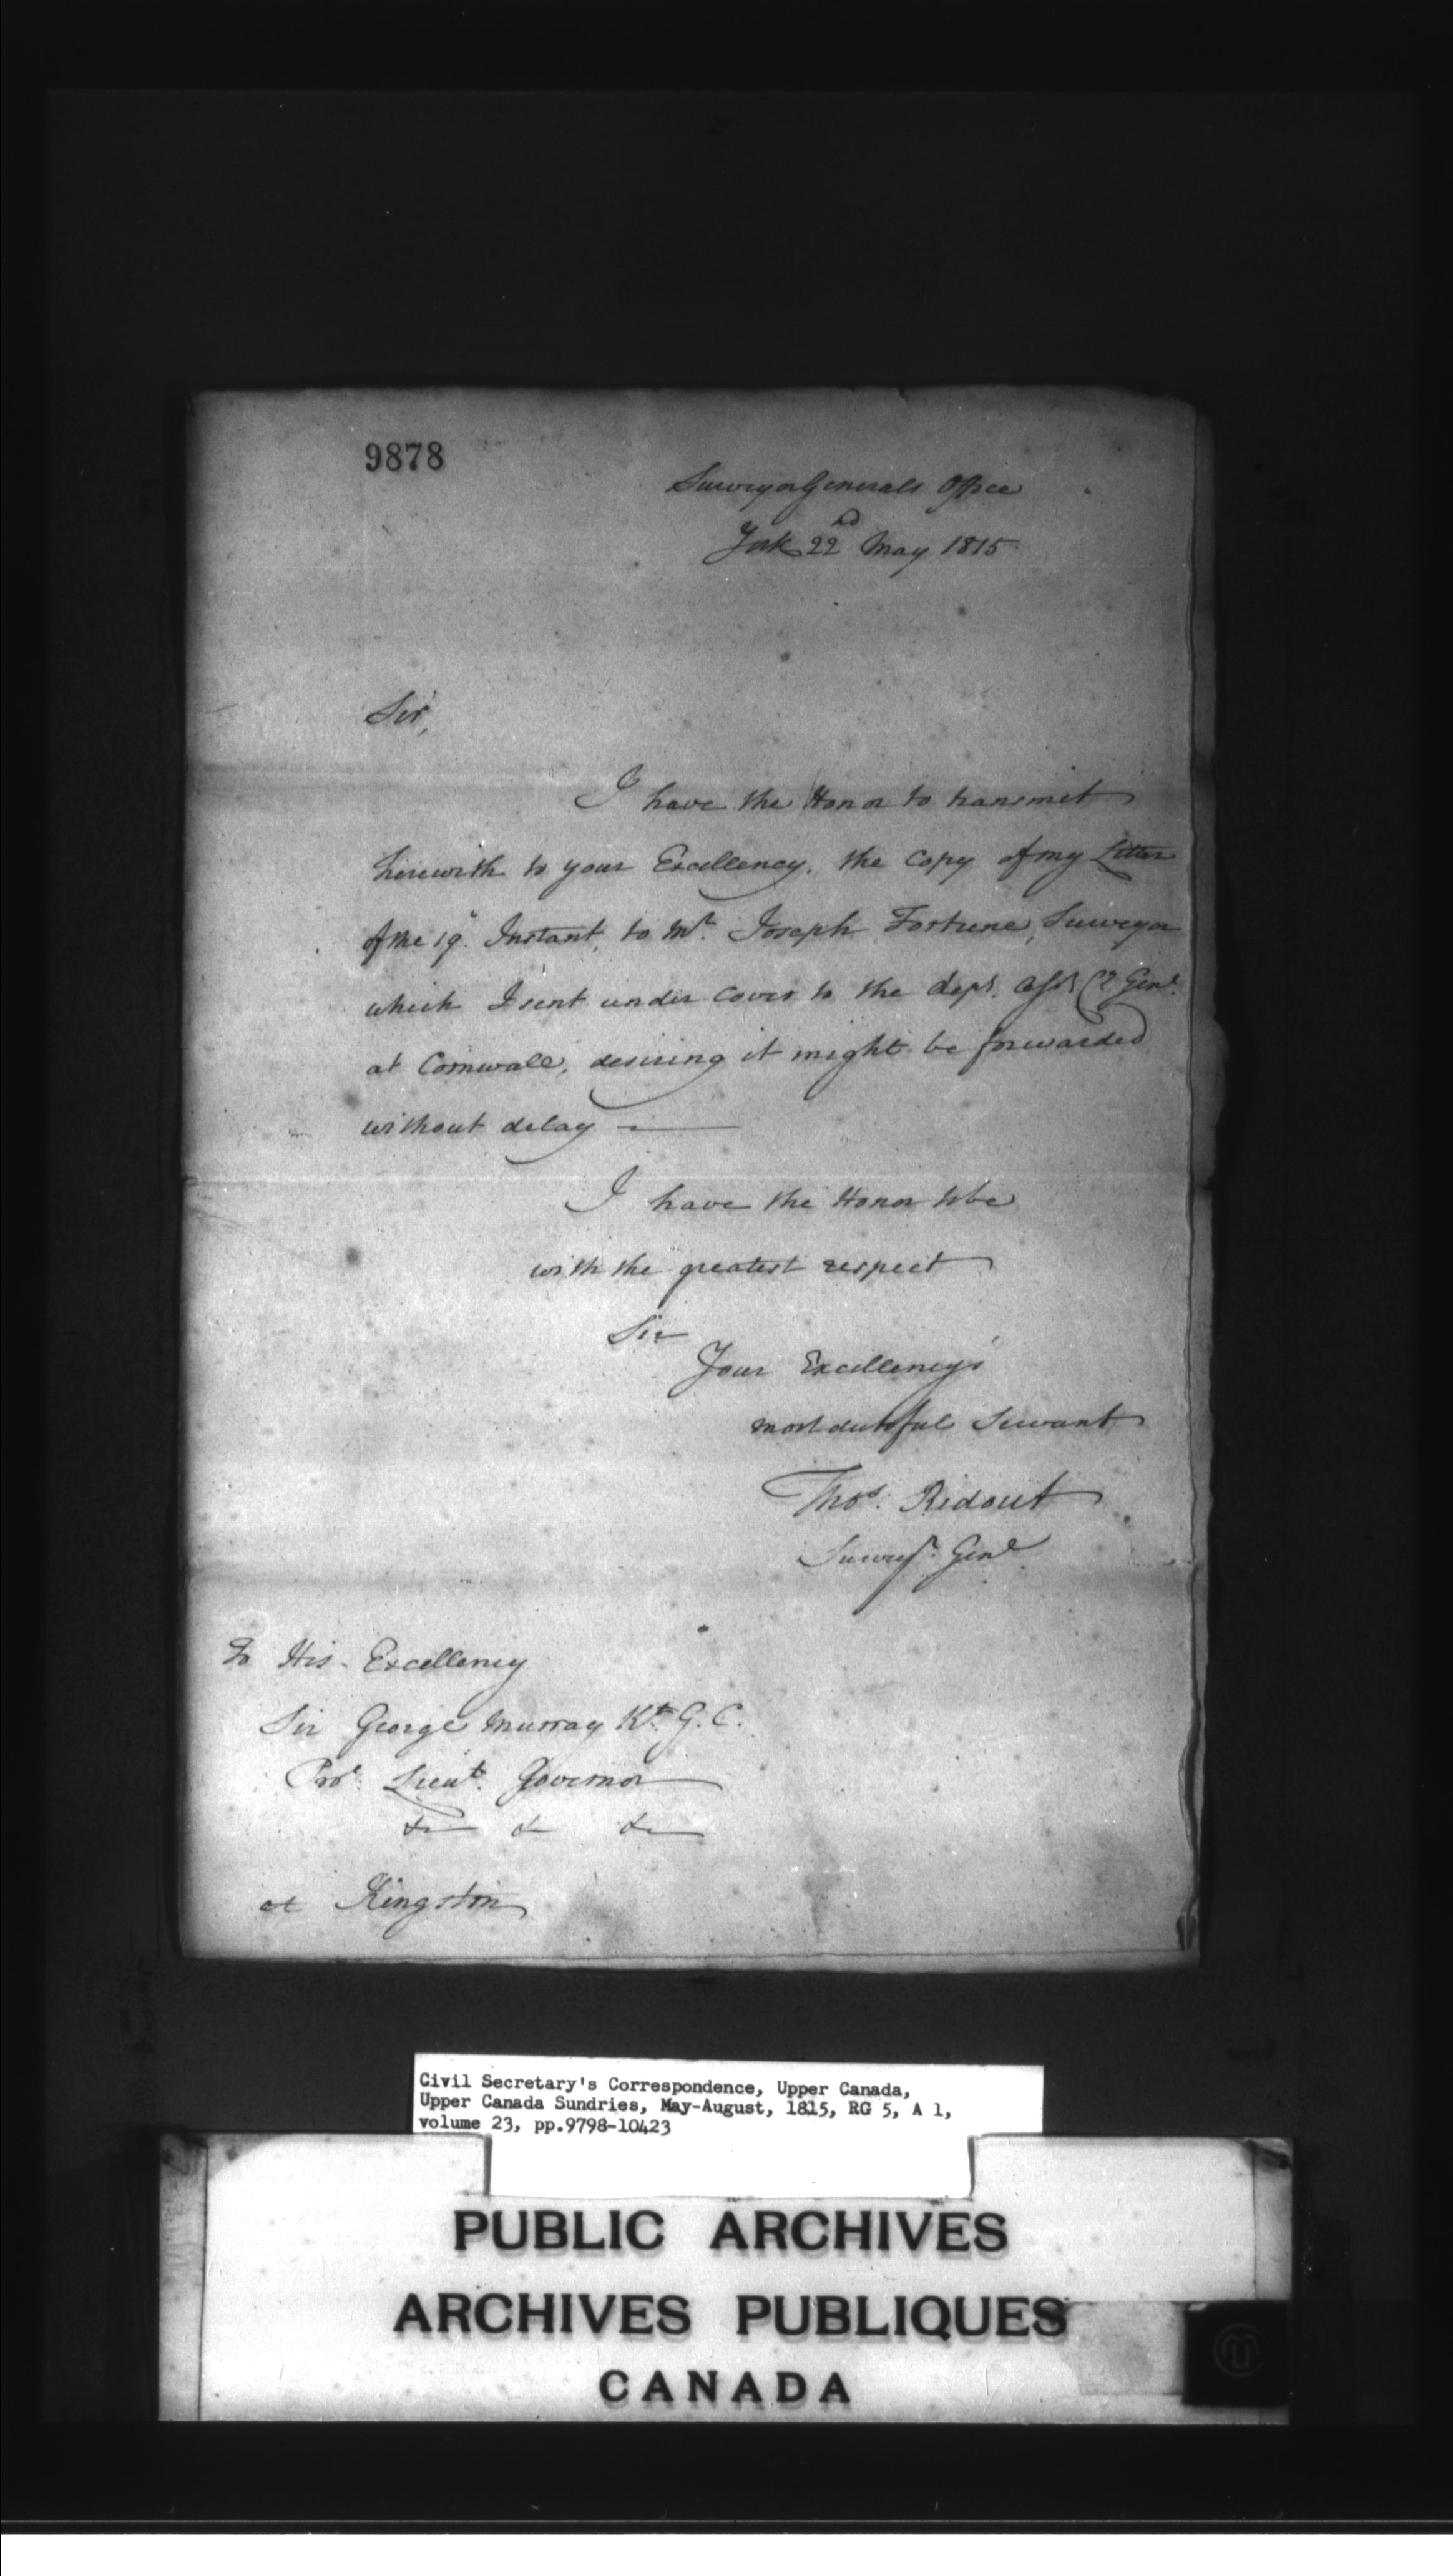 9878
Surveyor Generals Office
York 22nd May 1815
Sir,
I have the Honor to transmit
herewith to your Excellency, the Copy of my Letter
of the 19th Instant, to Mr. Joseph Fortune, Surveyor
which I sent under cover to the dept. Genl.
at Cornwall, desiring it might be forwarded
without delay —
I have the Honor to be
with the greatest respect
Sir
Your Excellency's
most dutiful Servant
Thos. Ridout
Survyr. Genl
To His Excellency
Sir George Murray Kt. G. C.
Prol. Lieut. Governor
&c &c &c
at Kingston
Civil Secretary's Correspondence, Upper Canada,
Upper Canada Sundries, May-August, 1815, RG 5, A 1,
volume 23, pp.9798-10423
PUBLIC ARCHIVES
ARCHIVES PUBLIQUES
CANADA